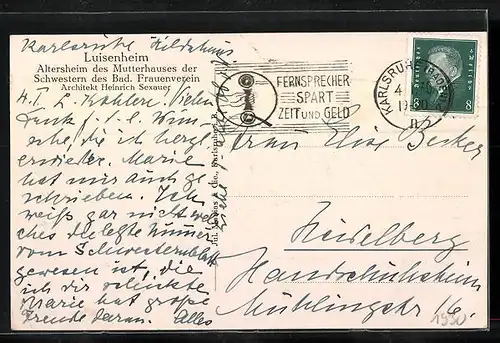 Karlsruhe
Luisenheim
Altersheim des Mutterhauses der
Schwestern des Bad. Frauenverein
Architekt Heinrich Sexauer
Vielen
Dank f. d. l. Wün-
sche, die ich herzl.
erwidere. Marie
hat mir auch ge-
schrieben. Ich
weiß gar nicht wel-
ches die letzte Nummer
vom Schwesternblatt
gewesen ist, die
ich dir schickte
Marie hat große
Freude daran. Alles
Liebe
FERNSPRECHER
SPART
ZEIT UND GELD
KARLSRUHE (BADEN)
8 8
Frau Elise Becker
Heidelberg
Handschuhsheim
Mühlingstr. 16.
1930